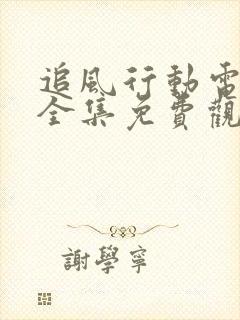 追風行動電
全集免費觀
謝學寧